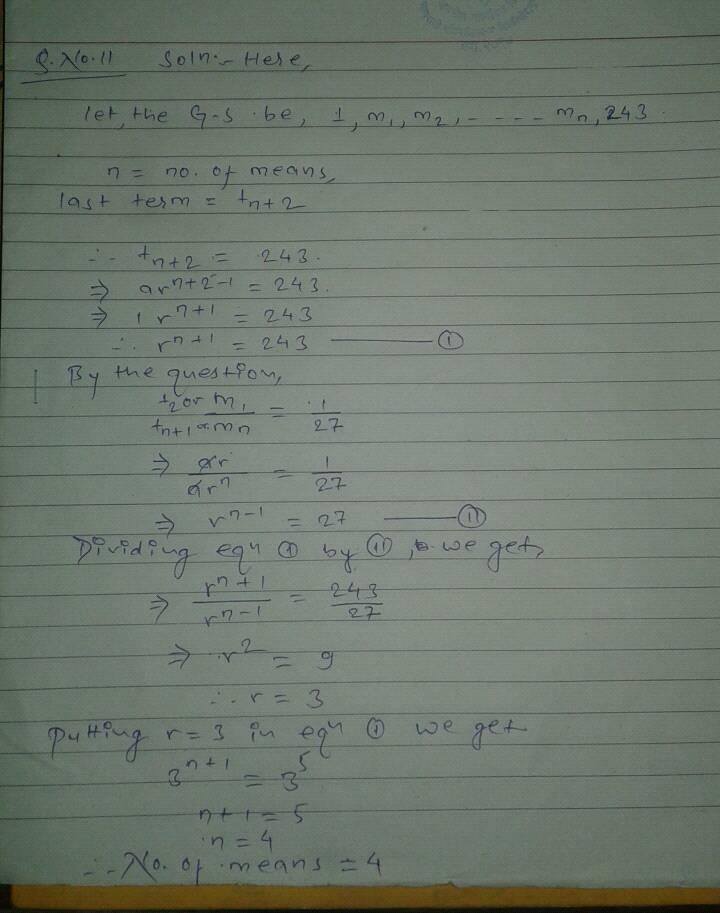 Q.No.11 Soln:- Here,
let, the G-S be, 1, m₁, m₂, - - - - mₙ, 243.
n = no. of means,
last term = tₙ₊₂
∴ tₙ₊₂ = 243.
⇒ arⁿ⁺²⁻¹ = 243.
⇒ 1 rⁿ⁺¹ = 243
∴ rⁿ⁺¹ = 243 ——— ①
By the question,
t₂ or m₁ / tₙ₊₁ or mₙ = 1/27
⇒ ar / arⁿ = 1/27
⇒ rⁿ⁻¹ = 27 ——— ⑪
Dividing eqn ① by ⑪, we get,
⇒ rⁿ⁺¹ / rⁿ⁻¹ = 243/27
⇒ r² = 9
∴ r = 3
putting r = 3 in eqn ① we get
3ⁿ⁺¹ = 3⁵
n+1 = 5
n = 4
∴ No. of means = 4